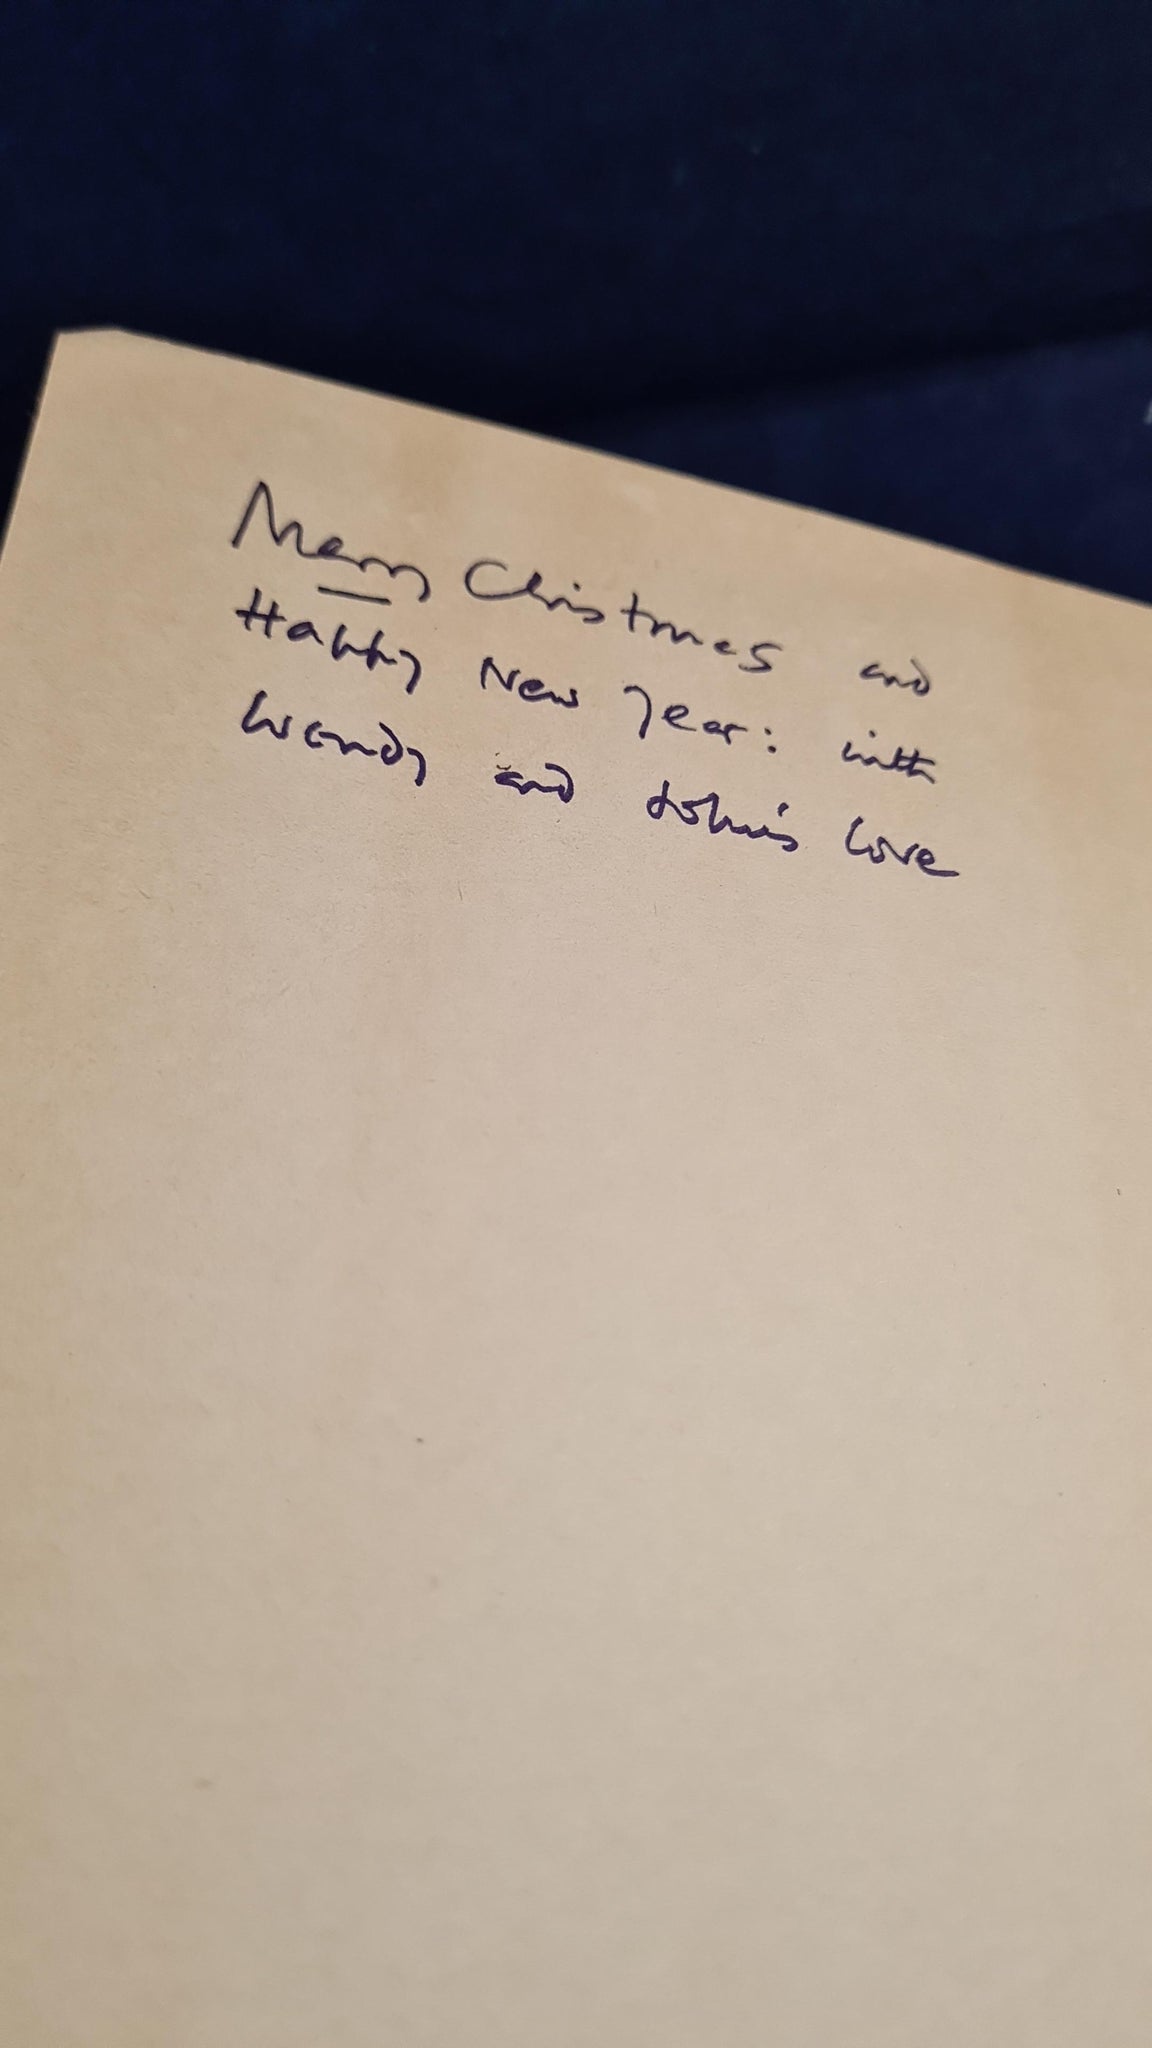 Merry Christmas and
Happy New Year: with
Wendy and John's love